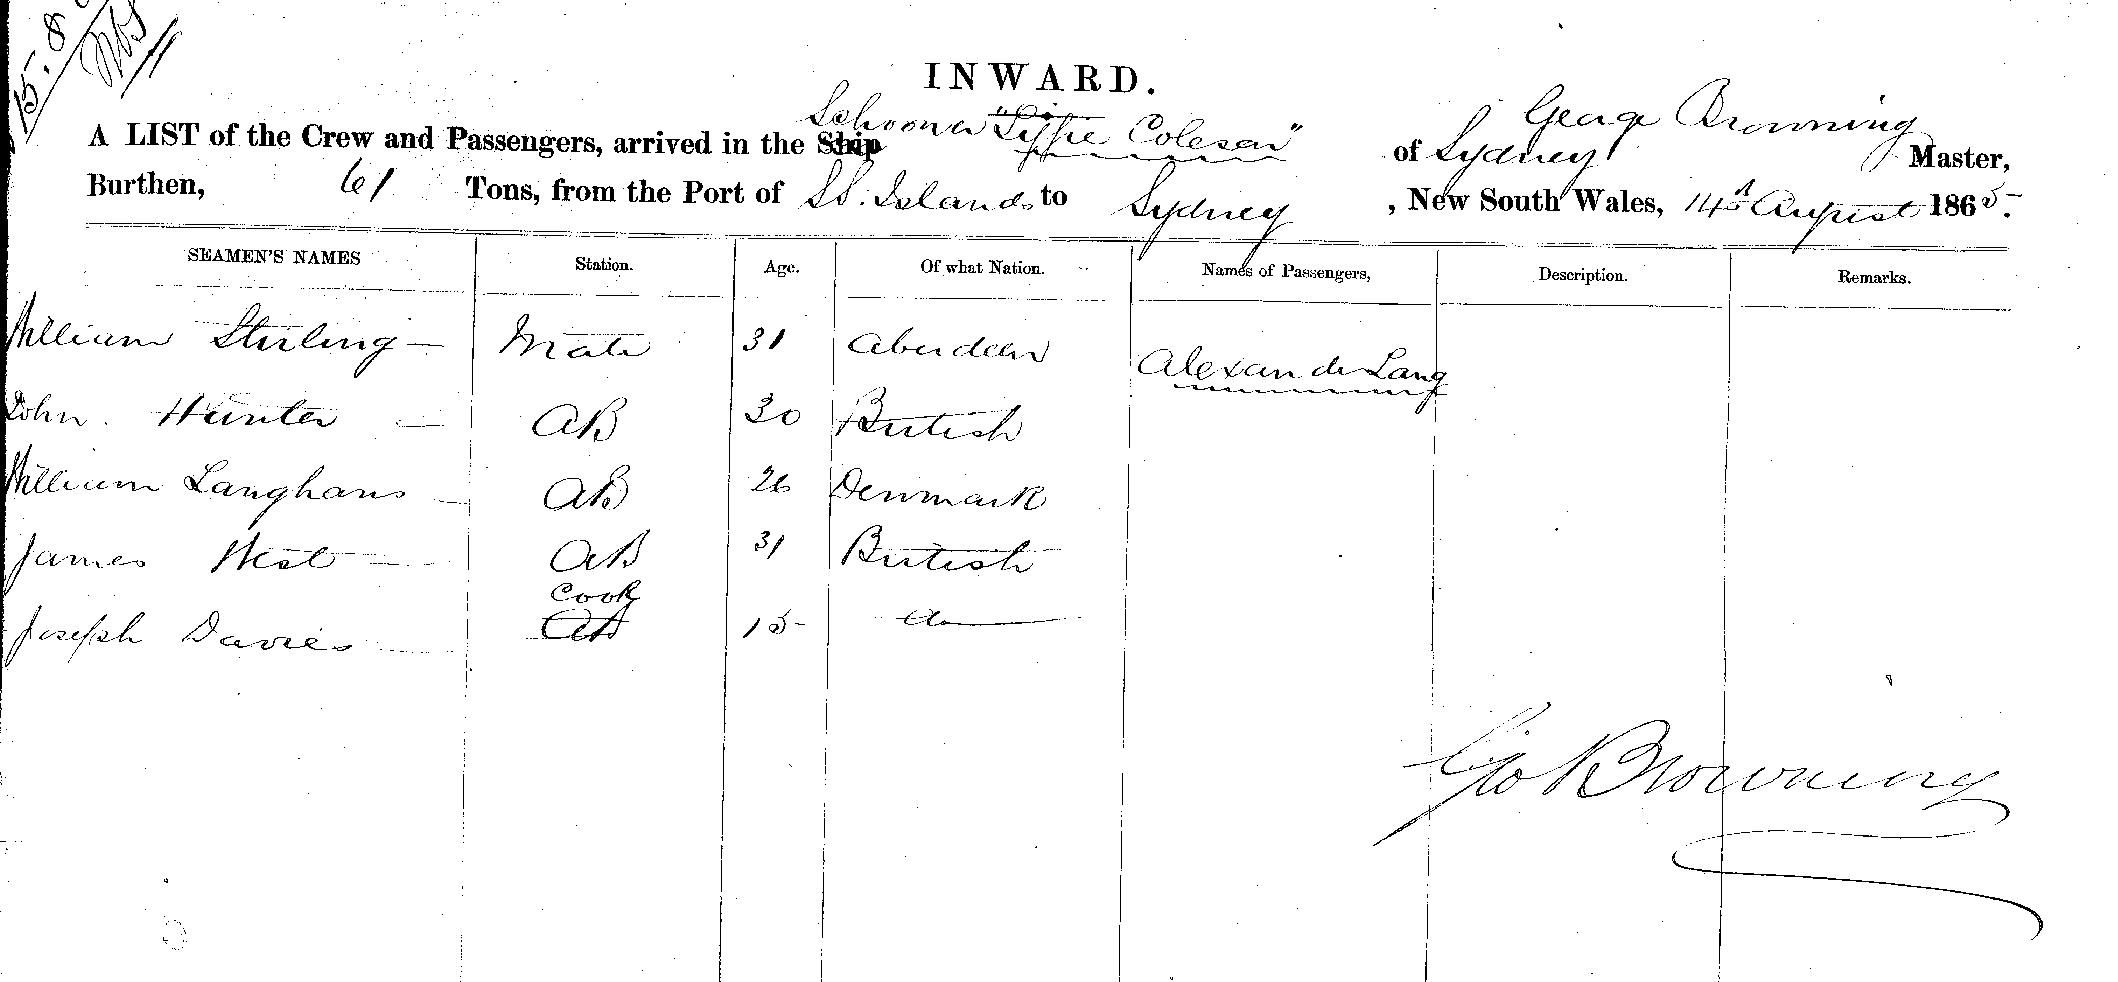 15. 8
INWARD.
A LIST of the Crew and Passengers, arrived in the Ship Schooner Colesar" of Sydney George Browning Master,
Burthen, 61 Tons, from the Port of SS. Islands to Sydney , New South Wales, 14th August 1865.
SEAMEN'S NAMES Station. Age. Of what Nation. Names of Passengers, Description. Remarks.
William Stirling — Mate 31 Aberdeen Alexander Lang
John Hunter — AB 30 British
William Langhans — AB 26 Denmark
James West — AB 31 British
Cook
Joseph Davies — AB 15 do
Geo Browning